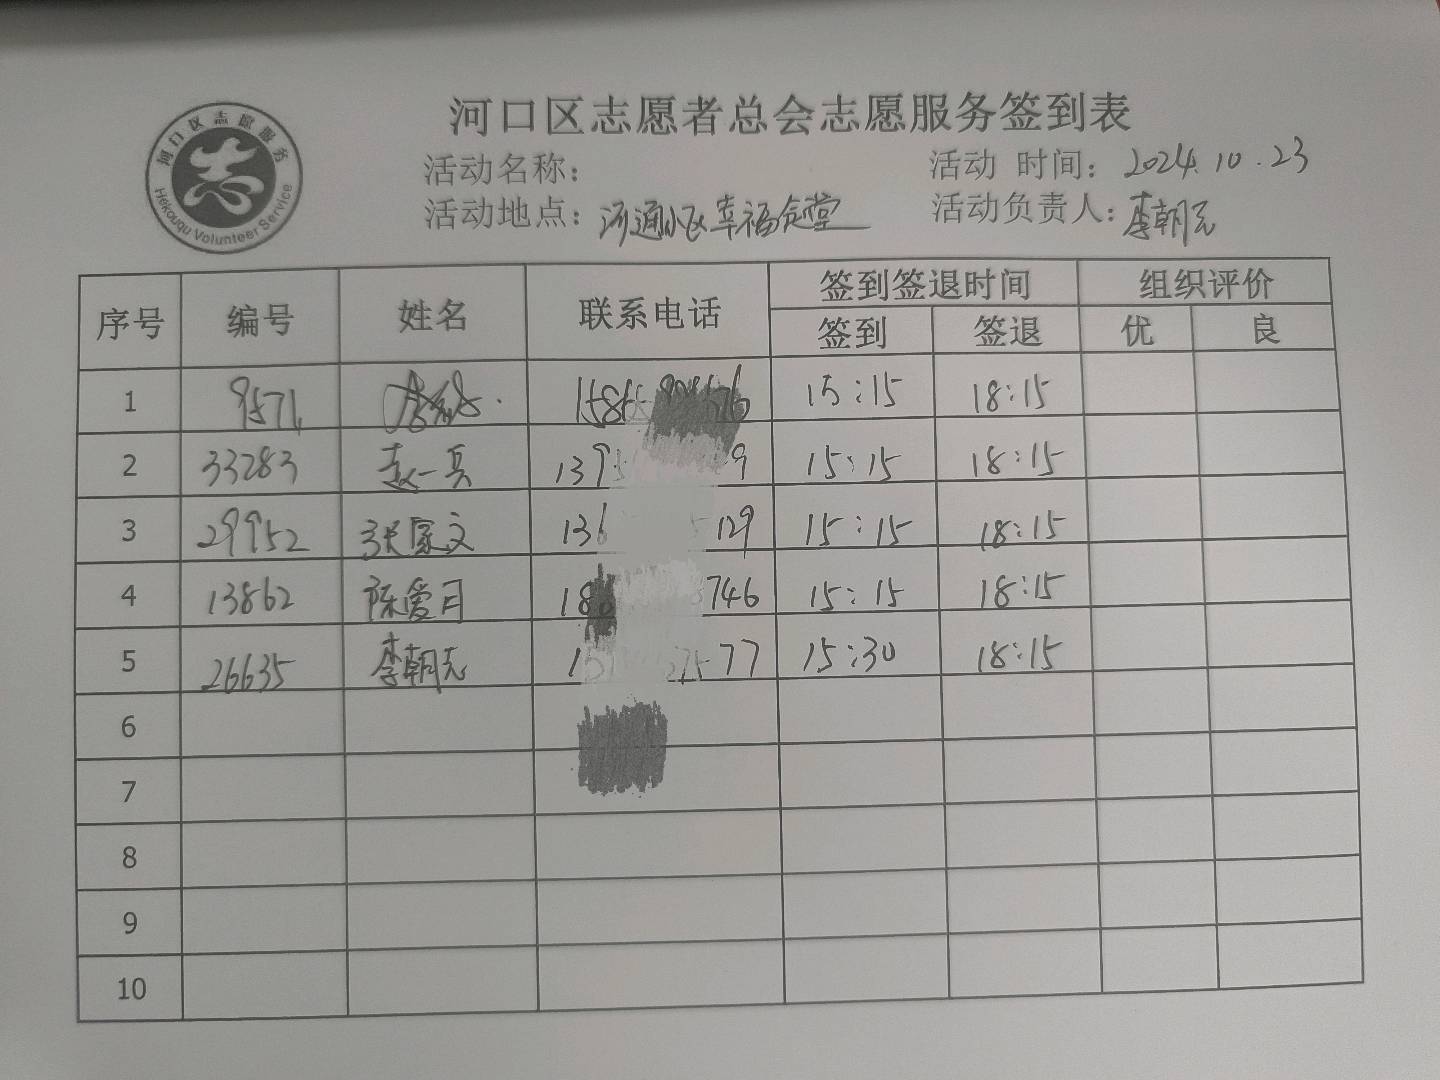 河口区志愿者总会志愿服务签到表
河口区志愿服务
Hekouqu Volunteer Service
活动名称： 活动 时间：2024.10.23
活动地点：河通小区幸福食堂 活动负责人：李朝亮
序号 编号 姓名 联系电话 签到签退时间 组织评价
签到 签退 优 良
1 9571 15:15 18:15
2 33283 赵一兵 1395 9 15:15 18:15
3 29952 张家文 136 129 15:15 18:15
4 13862 陈爱月 180 746 15:15 18:15
5 26635 李朝亮 77 15:30 18:15
6
7
8
9
10